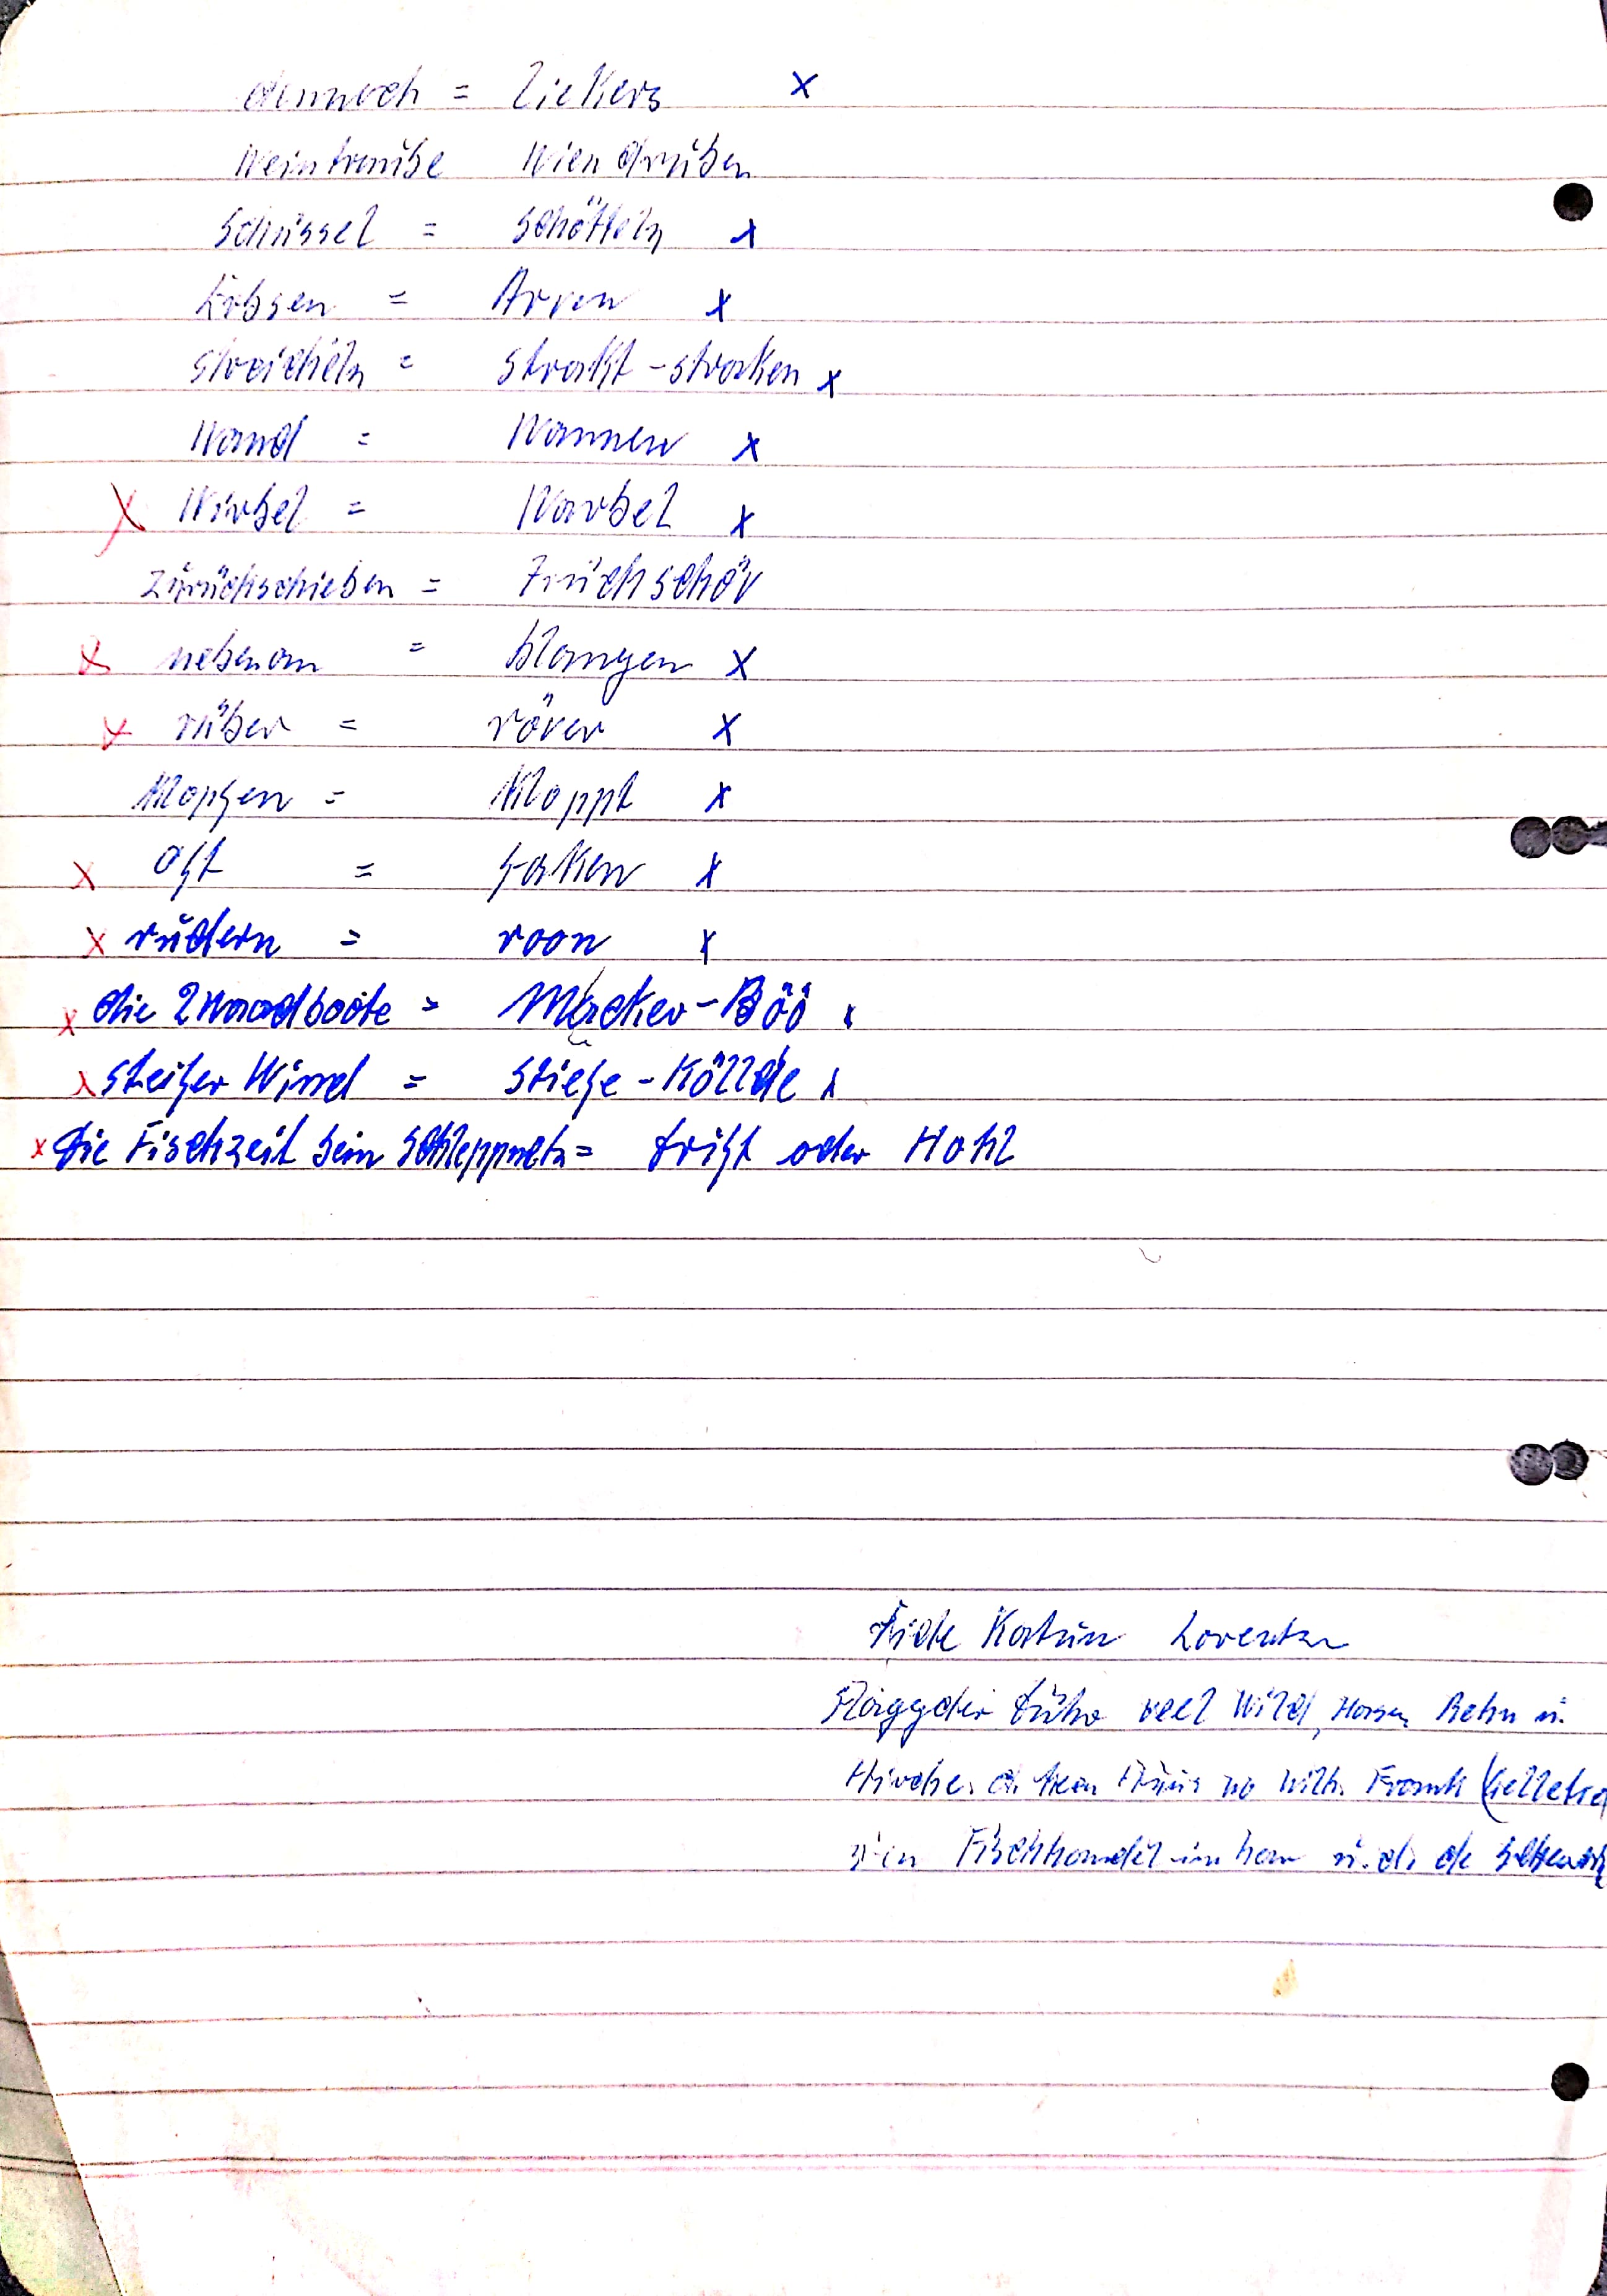 dennoch = liekers x
Weintraube Wiendruben
Schüssel = Schötteln x
Erbsen = Arven x
streicheln = strakt - straken x
Wand = Wannen x
x Wirbel = Warbel x
zurückschieben = Trückschöv
x nebenan = blangen x
x rüber = röver x
Klopfen = Kloppt x
x oft = faken x
x rudern = roon x
x die Zwaadboote = Macker-Böö x
x steifer Wind = stiefe - Köllde x
x die Fischzeit beim Schleppnetz = drift oder Hohl
Katrin Lorentzen
veel Wild, Hasen, Rehn u.
wo Wilh. Frank
Fischhandel